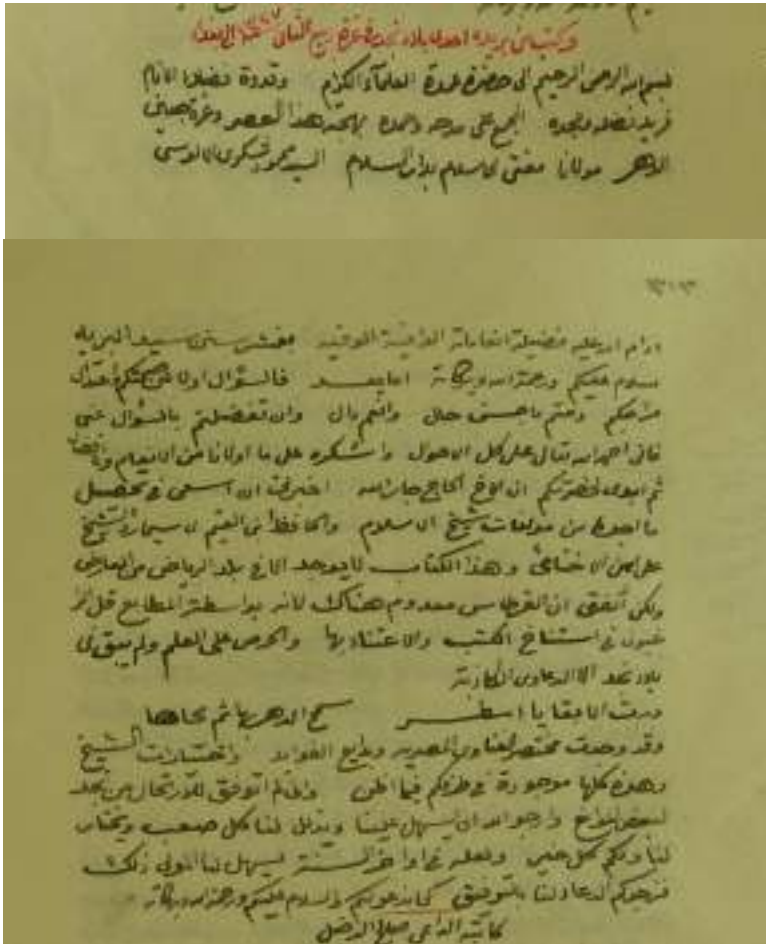 وكتب من بريدة احدى بلاد نجد في غرة ربيع الثاني الى بغداد
بسم الله الرحمن الرحيم الى حضرة عمدة العلماء الكرام وقدوة فضلاء الانام
فريد فضله ومجده المجمع على مدحه وحمده بهجة هذا العصر وغرة جبين
الدهر مولانا مفتى الاسلام بدار السلام السيد محمود شكرى الالوسى
دام الله عليه فضيلة بنشر سنن سيد البريه
سلام عليكم ورحمة الله وبركاته اما بعد فالسؤال اولا عن صحتكم واعتدال
مزاجكم دمتم باحسن حال وانعم بال وان تفضلتم بالسؤال عنى
فانى احمد الله تعالى على كل الاحوال واشكره على ما اولانا من الانعام والافضال
ثم ابدى لحضرتكم ان الاخ الحاج جار الله اخبرنى ان اسعى فى تحصيل
ما اجده من مولفات شيخ الاسلام والحافظ ابن القيم لا سيما رد الشيخ
على ابن الاخنائى وهذا الكتاب لا يوجد الا فى بلد الرياض من العارض
ولكن اتفق ان القرطاس معدوم هناك لانه بواسطة المطابع قل الر
غبون فى استنساخ الكتب والاعتناء بها والحرص على العلم ولم يبق فى
بلاد نجد الا الدعاوى الكاذبة
درست الا بقايا اسطر سمح الدهر بها ثم محاها
وقد وجدت مختصر الفتاوى المصريه وبدايع الفوايد واختيارات الشيخ
وهذه كلها موجودة فى طرفكم فيما اظن وانى لم اتوفق للارتحال من نجد
لبعض وارجو الله ان يسهل علينا ويذلل لنا كل صعب ويختار
لنا ولكم كل خير ولعله فى اواخر السنة يسهل لنا المولى ذلك
فنرجوكم الدعاء لنا بالتوفيق كما ندعو لكم والسلام عليكم ورحمة الله وبركاته
كاتبه الداعى صالح الدخيل